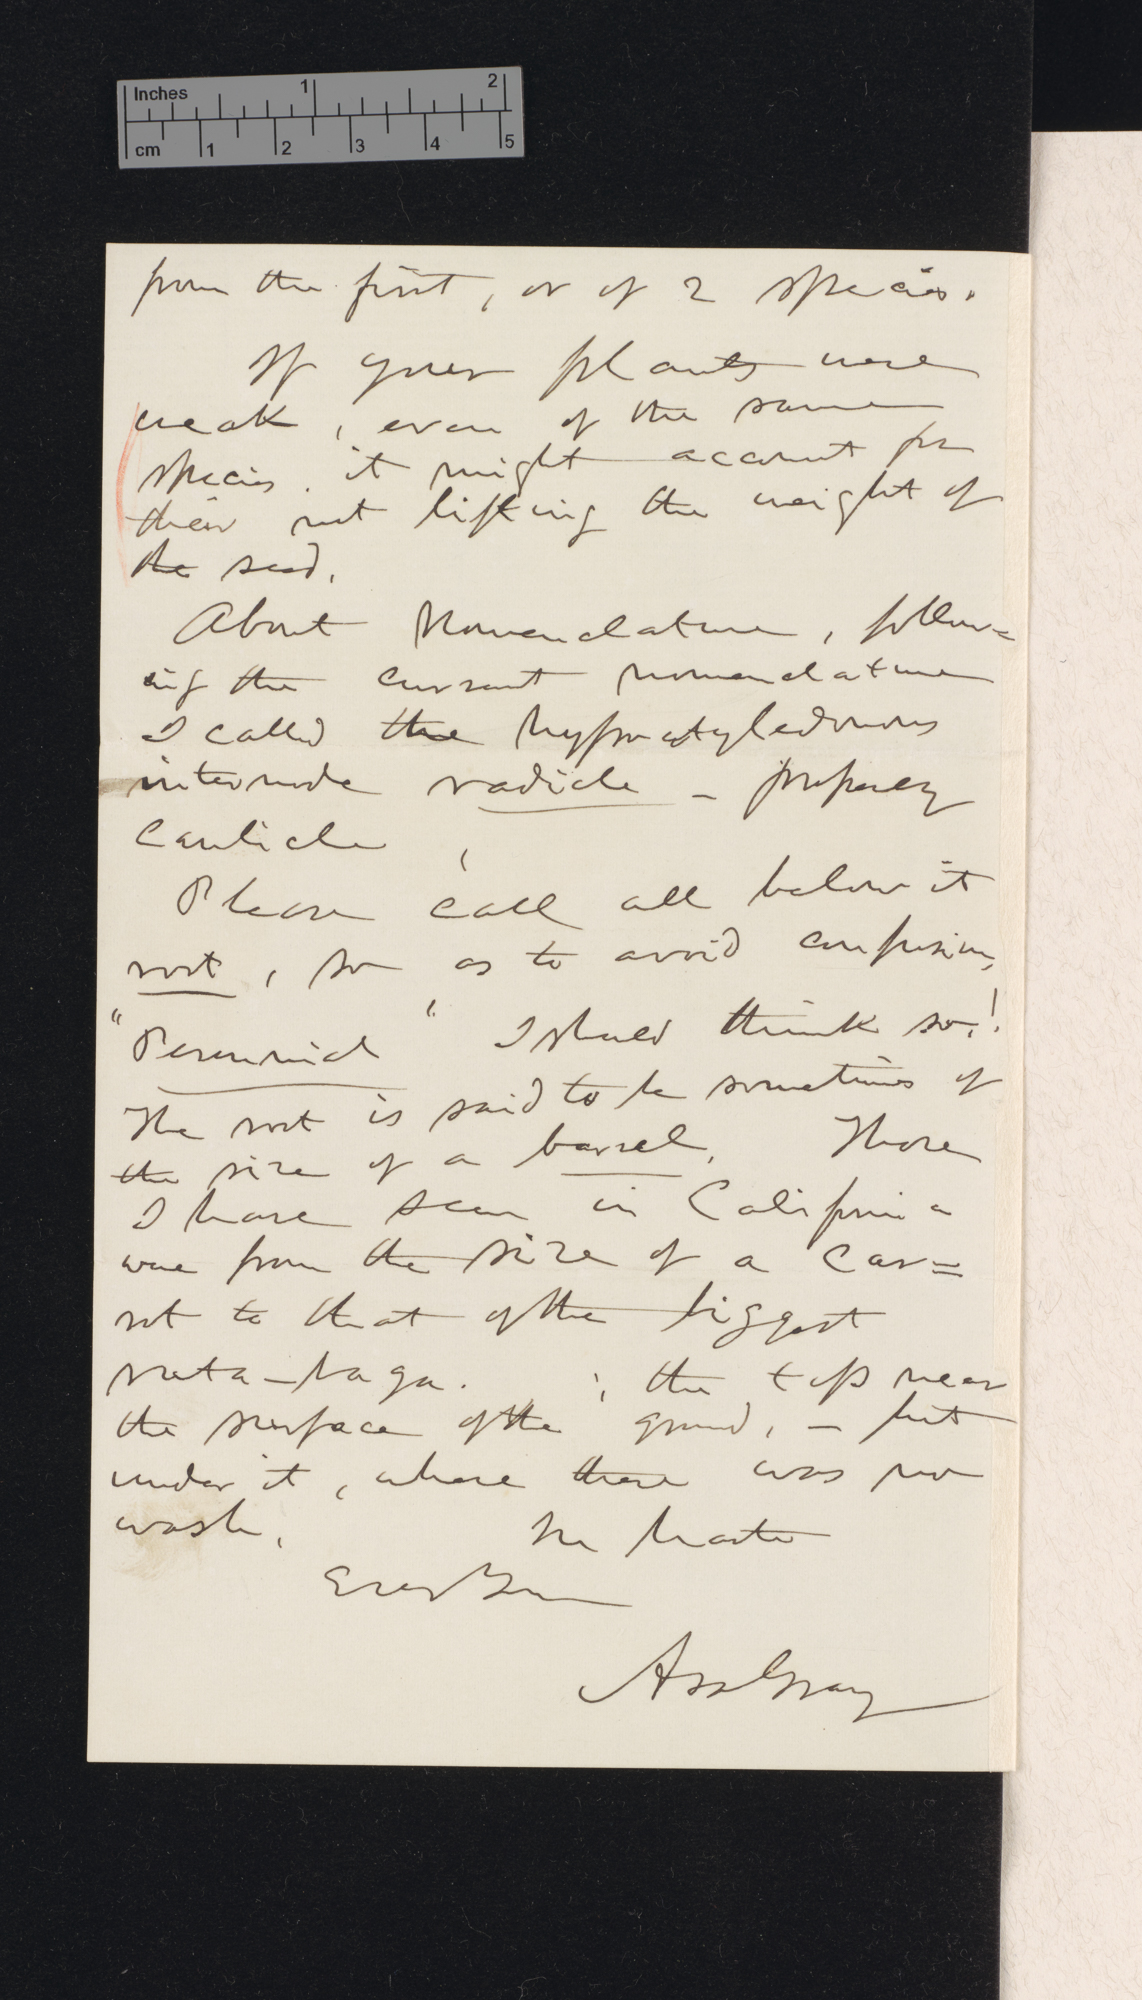 Inches 1 2
cm 1 2 3 4 5
from the first, or of 2 species.
If your plants were
weak, even of the same
species, it might account for
their not lifting the weight of
the seed.
About Nomenclature, follow=
ing the current nomenclature
I called the hypocotyledonous
internode radicle — properly
Caulicle,
Please call all below it
root, so as to avoid confusion,
"Perennial" I should think so!
The root is said to be sometimes of
the size of a barrel. Those
I have seen in California
were from the size of a Car=
rot to that of the biggest
ruta-baga. ; the tops near
the surface of the ground, — but
under it, where there was no
wash. In haste
Ever Yours
Asa Gray